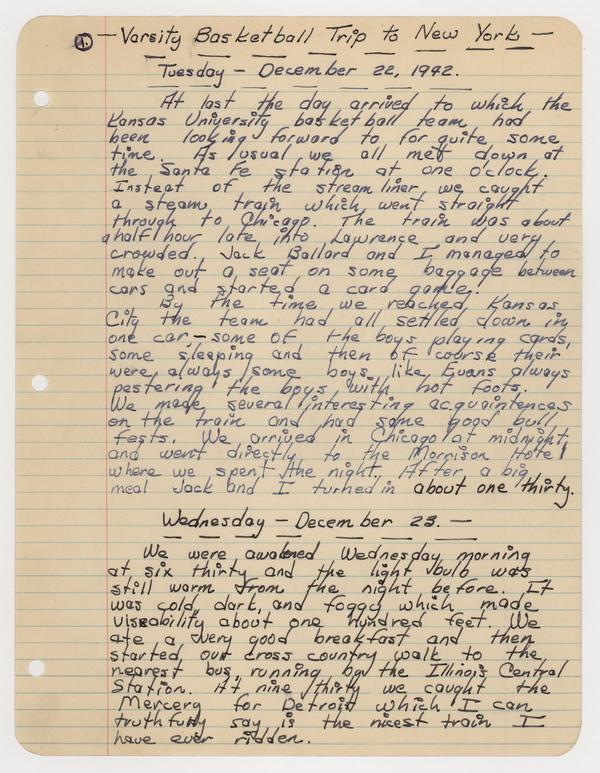 1. — Varsity Basketball Trip to New York —
Tuesday — December 22, 1942.
At last the day arrived to which the
Kansas University basketball team had
been looking forward to for quite some
time. As usual we all met down at
the Santa Fe station at one o'clock.
Insteat of the stream liner we caught
a steam train which went straight
through to Chicago. The train was about
a half hour late into Lawrence and very
crowded. Jack Ballard and I managed to
make out a seat on some baggage between
cars and started a card game.
By the time we reached Kansas
City the team had all settled down in
one car — some of the boys playing cards,
some sleeping and then of course their
were always some boys like Evans always
pestering the boys with hot foots.
We made several interesting acquaintences
on the train and had some good bull
fests. We arrived in Chicago at midnight,
and went directly to the Morrison Hotel
where we spent the night. After a big
meal Jack and I turned in about one thirty.
Wednesday — December 23. —
We were awakened Wednesday morning
at six thirty and the light bulb was
still warm from the night before. It
was cold, dark, and foggy which made
viseability about one hundred feet. We
ate a very good breakfast and then
started our cross country walk to the
nearest bus running by the Illinois Central
Station. At nine thirty we caught the
Mercery for Detroit which I can
truthfully say is the nicest train I
have ever ridden.